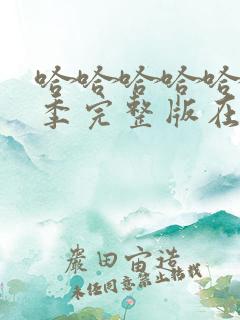 哈哈哈哈哈
季完整版在
岩田宙造
未经同意禁止转载